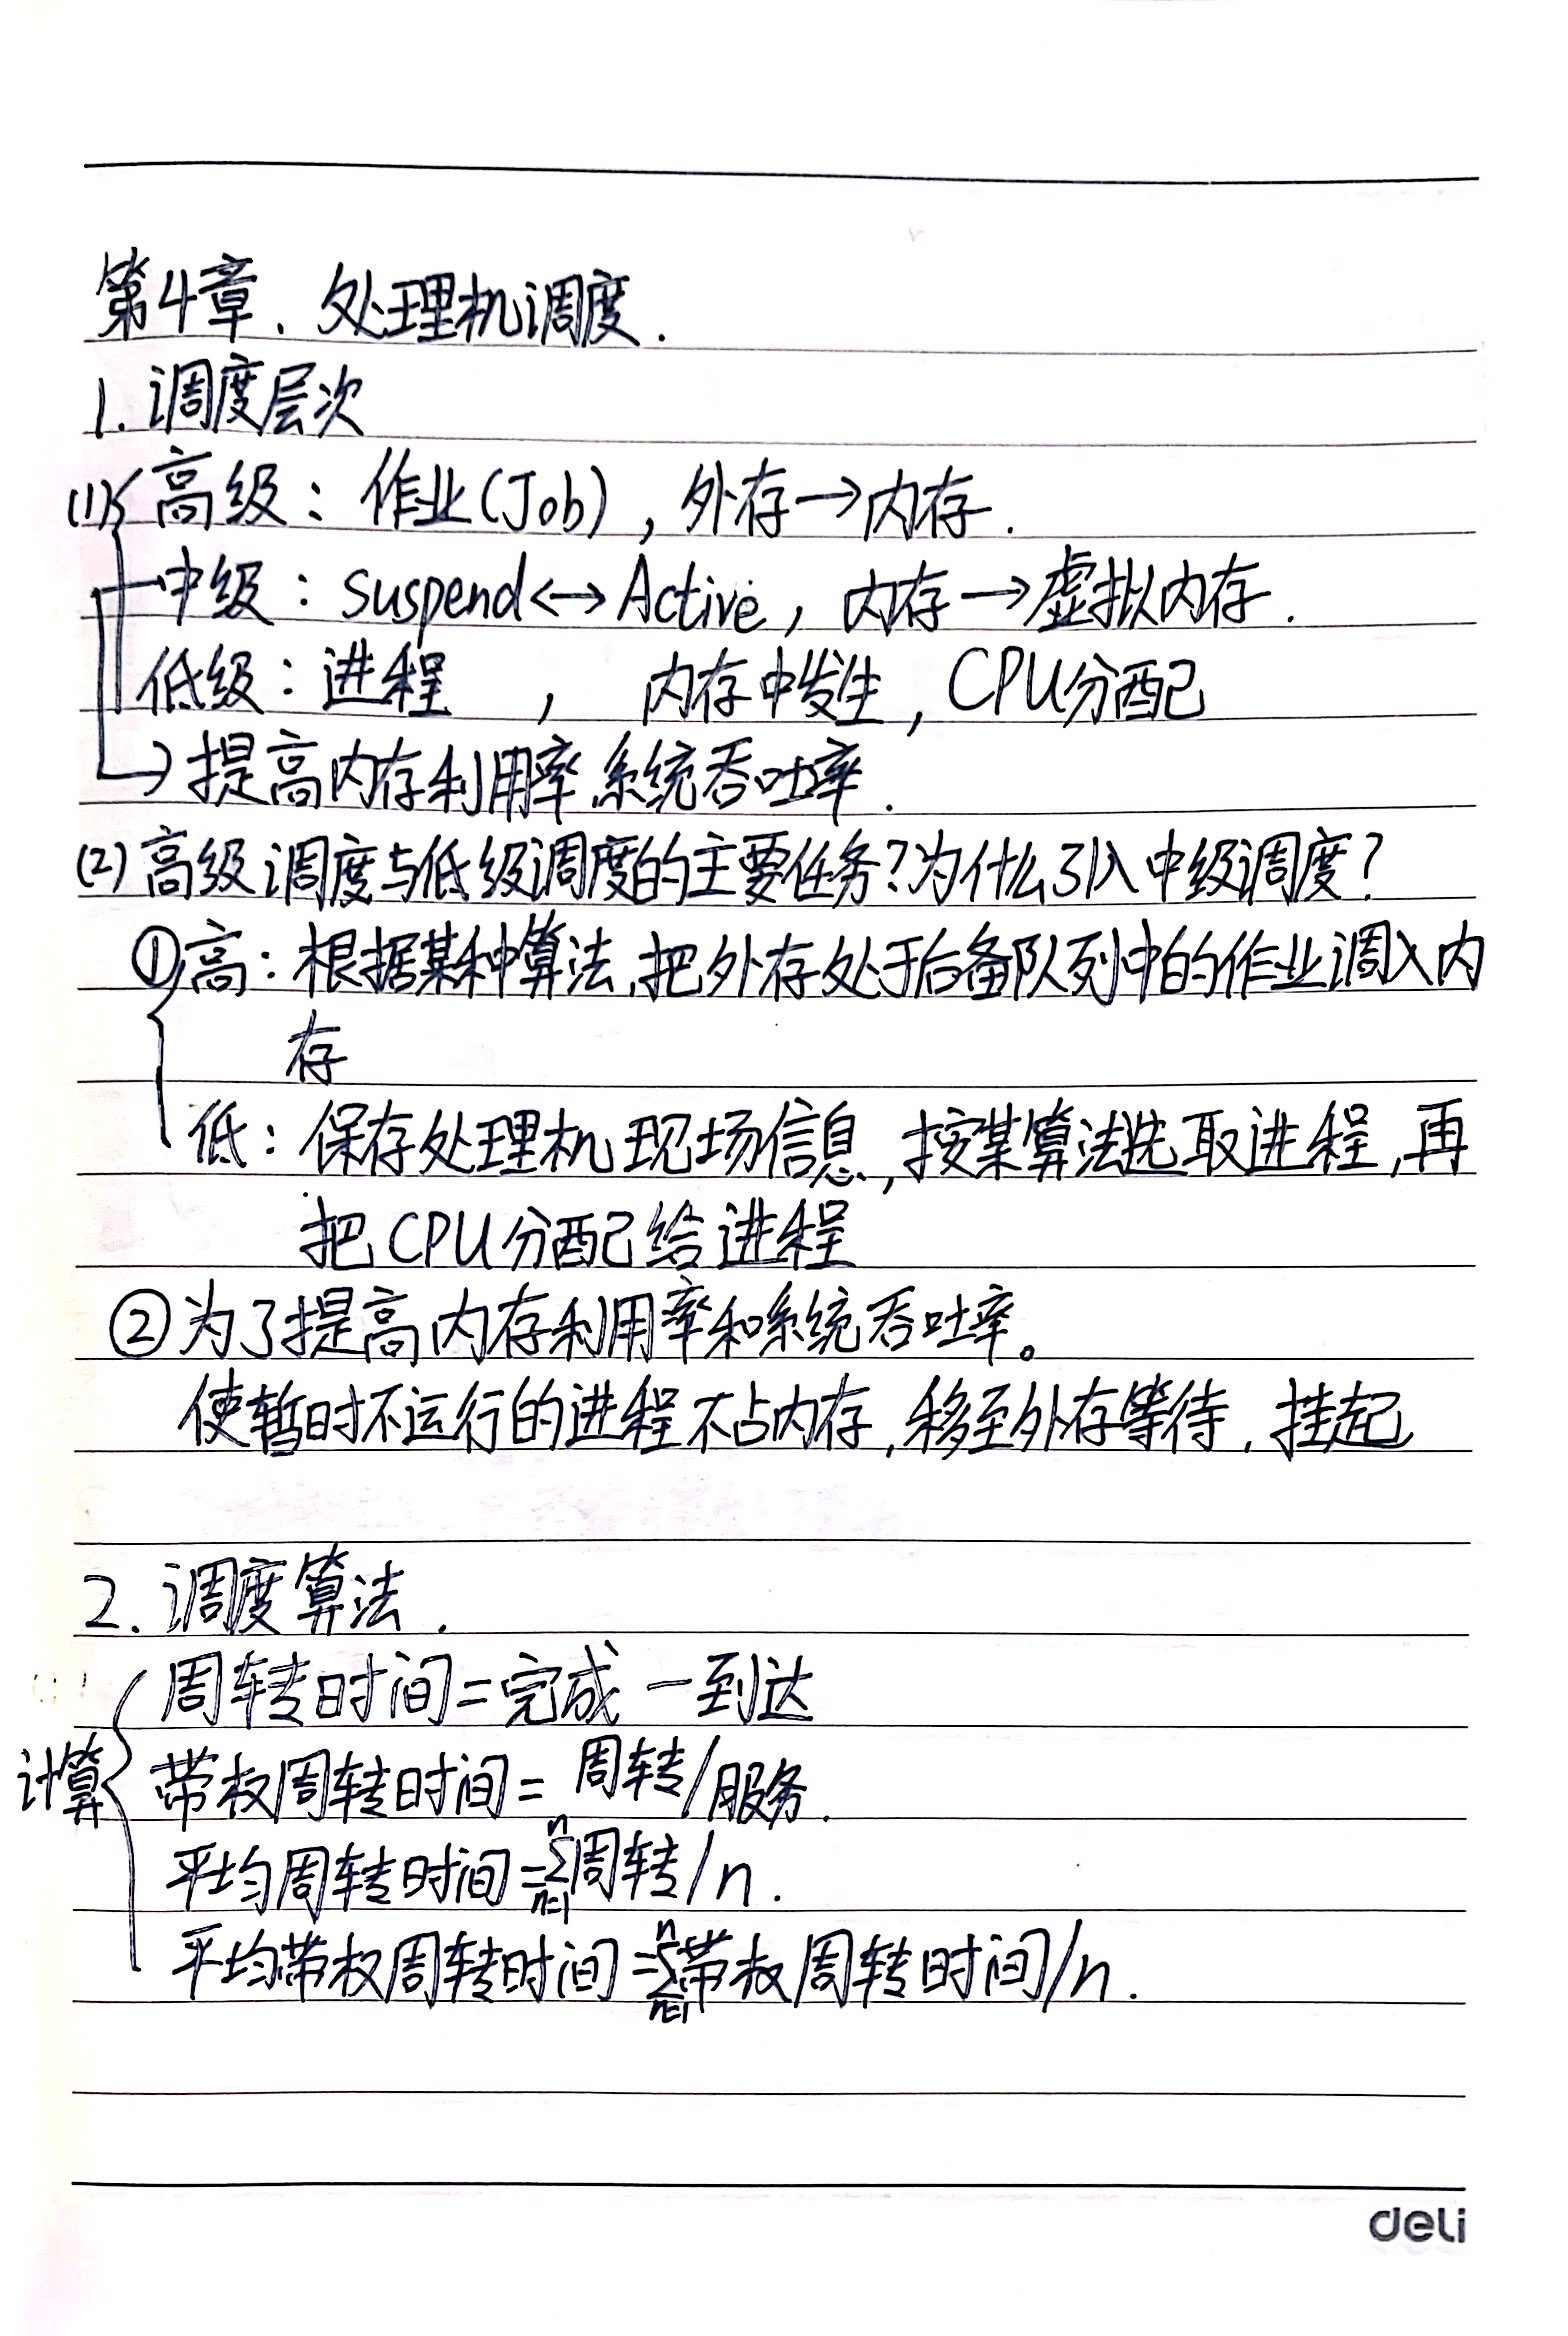 第4章、处理机调度.
1. 调度层次
(1) 高级：作业(Job)，外存→内存.
中级：suspend<->Active，内存→虚拟内存.
低级：进程 ， 内存中发生，CPU分配
→提高内存利用率,系统吞吐率.
(2) 高级调度与低级调度的主要任务?为什么引入中级调度?
①高：根据某种算法,把外存处于后备队列中的作业调入内
存
低：保存处理机现场信息,按某算法选取进程,再
把CPU分配给进程
②为了提高内存利用率和系统吞吐率。
使暂时不运行的进程不占内存,移至外存等待,挂起
2. 调度算法.
周转时间=完成-到达
计算 带权周转时间=周转/服务.
平均周转时间=∑(n=1→n)周转/n.
平均带权周转时间=∑(n=1→n)带权周转时间/n.
deli